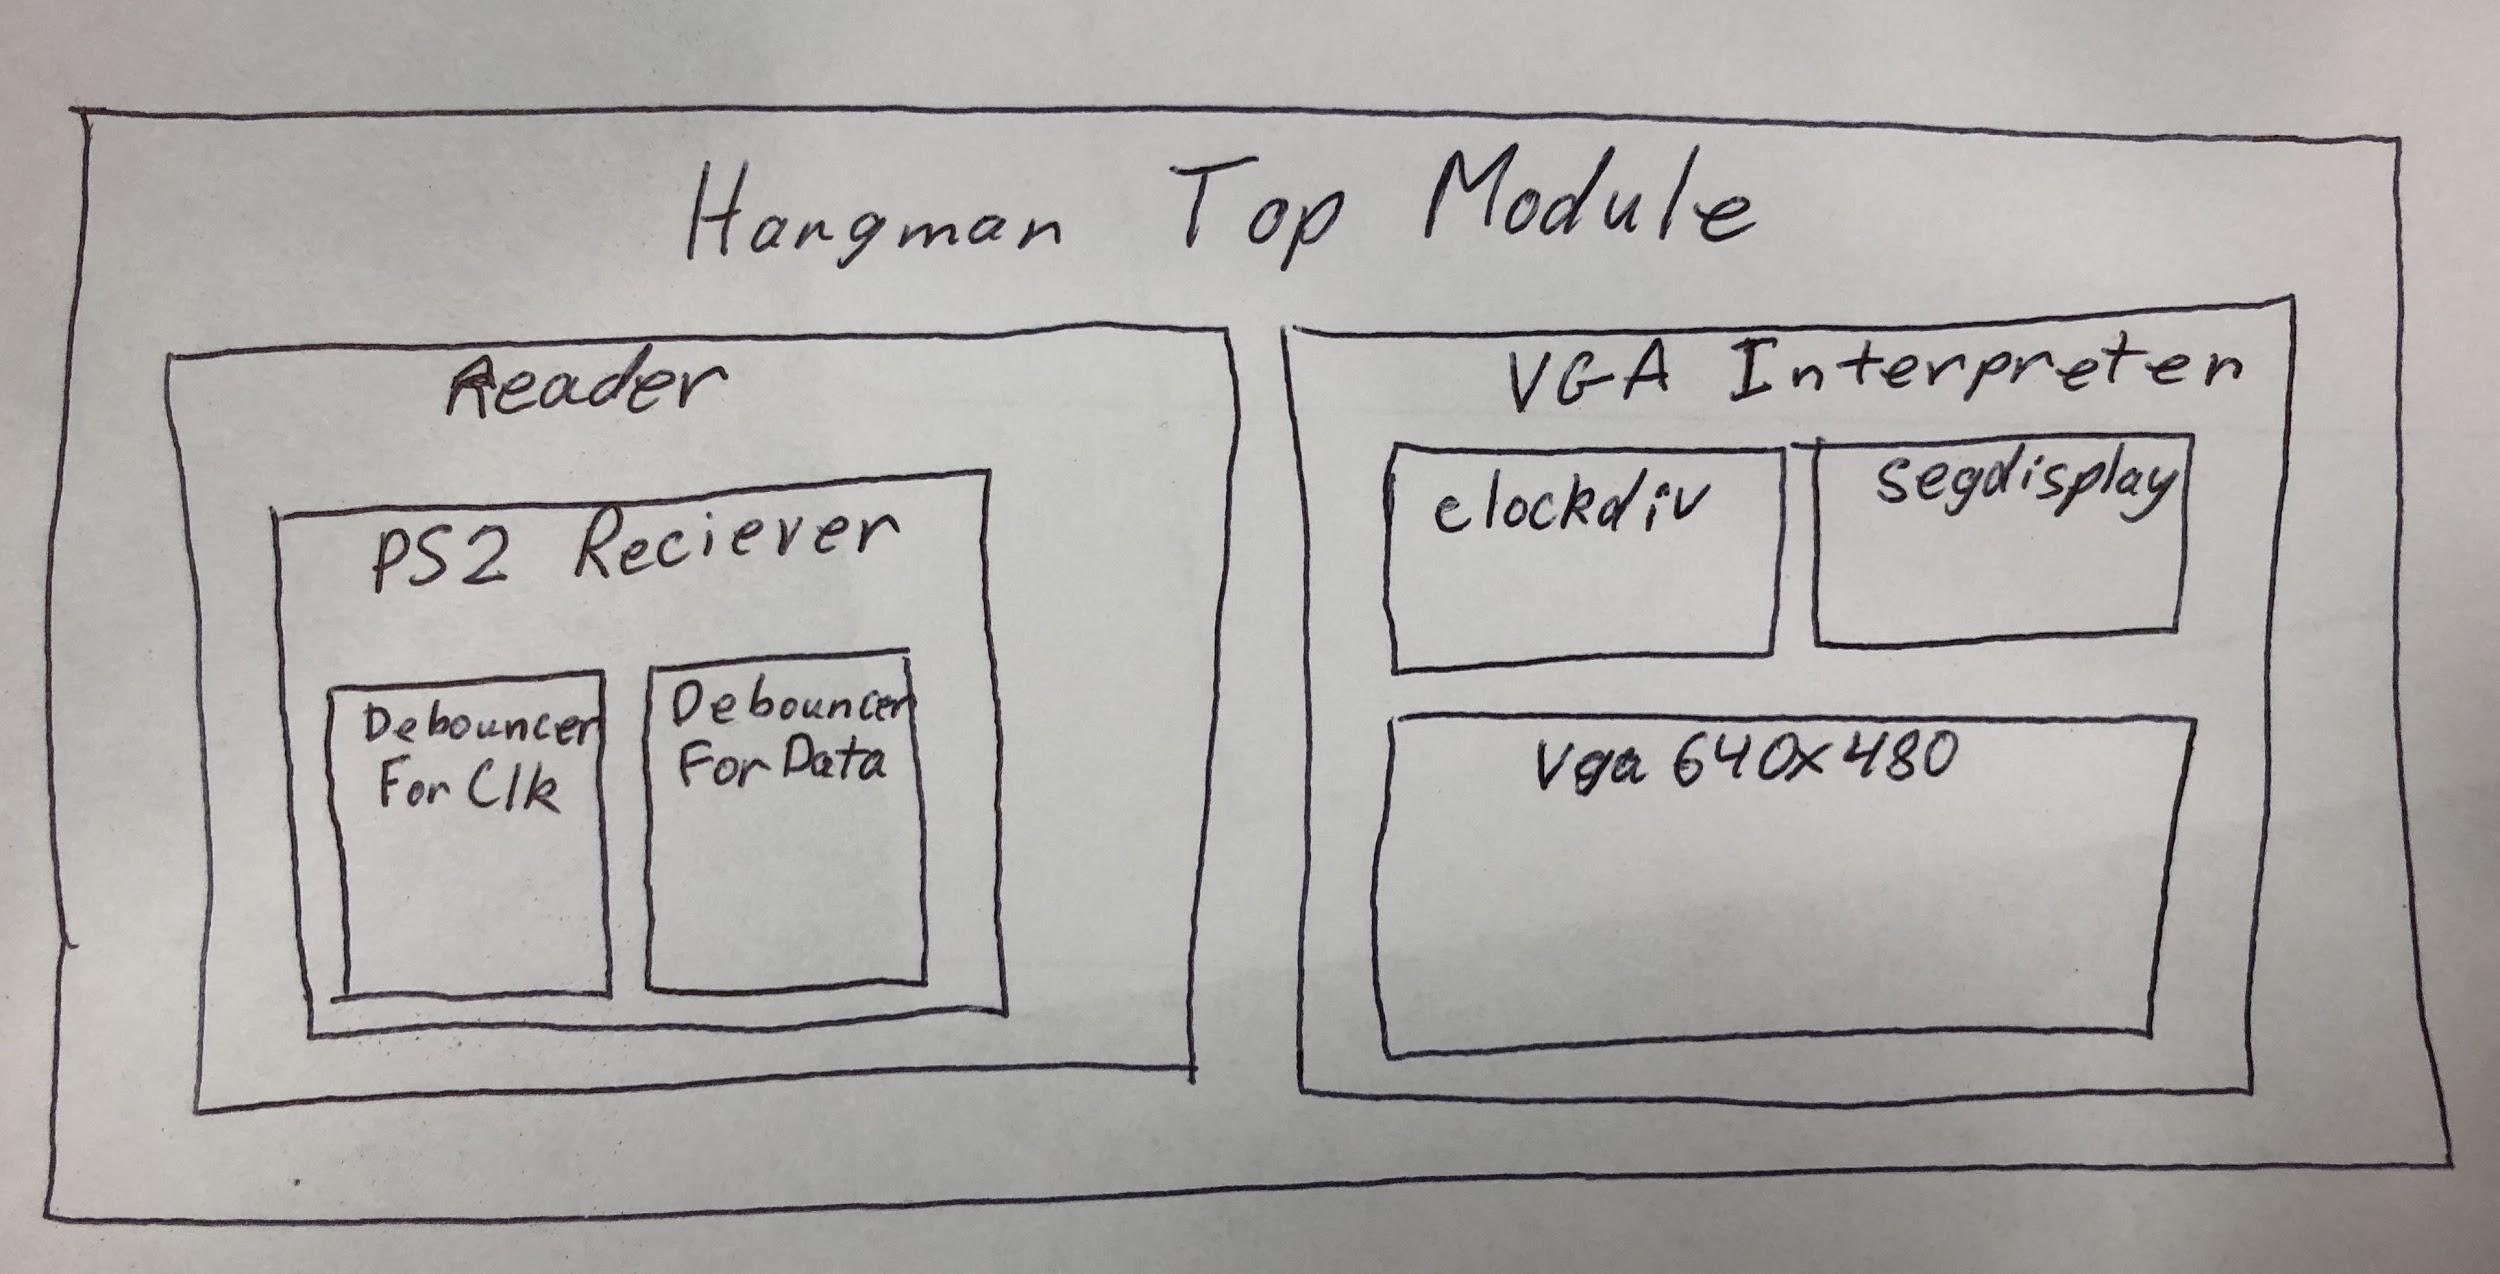 Hangman Top Module
Reader
PS2 Reciever
Debouncer
For Clk
Debouncer
For Data
VGA Interpreter
clockdiv
segdisplay
Vga 640x480